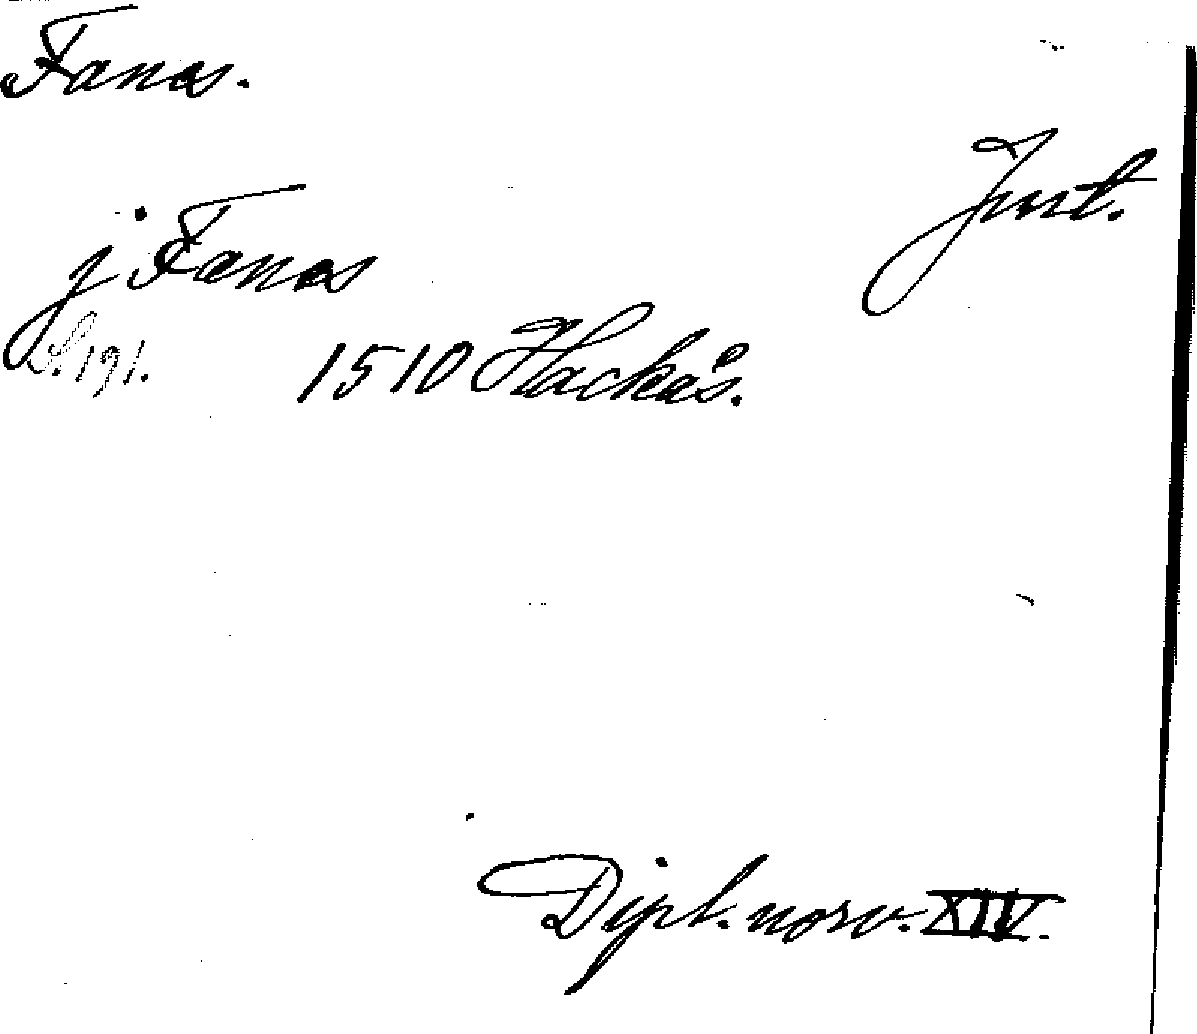 Fanos.
Jmt.
j Fanos
S. 191.
1510 Hackås.
Dipl. norv. XIV.